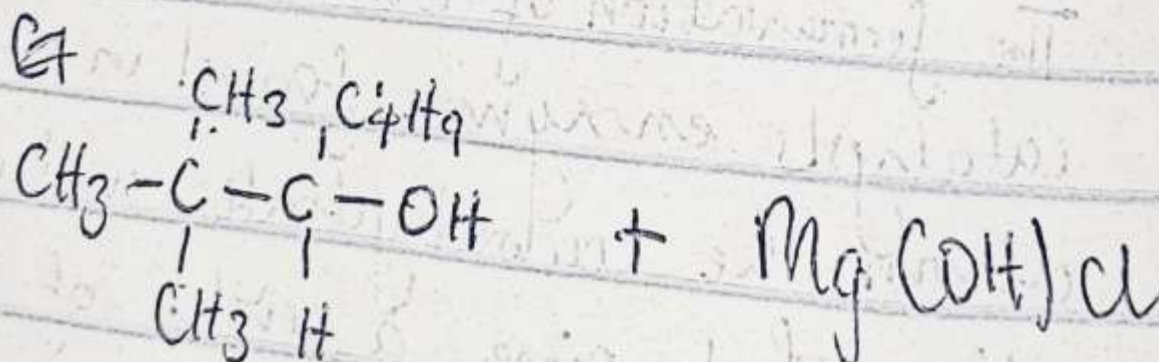 CH3 C4H9
CH3 - C - C - OH + Mg(OH)Cl
CH3 H